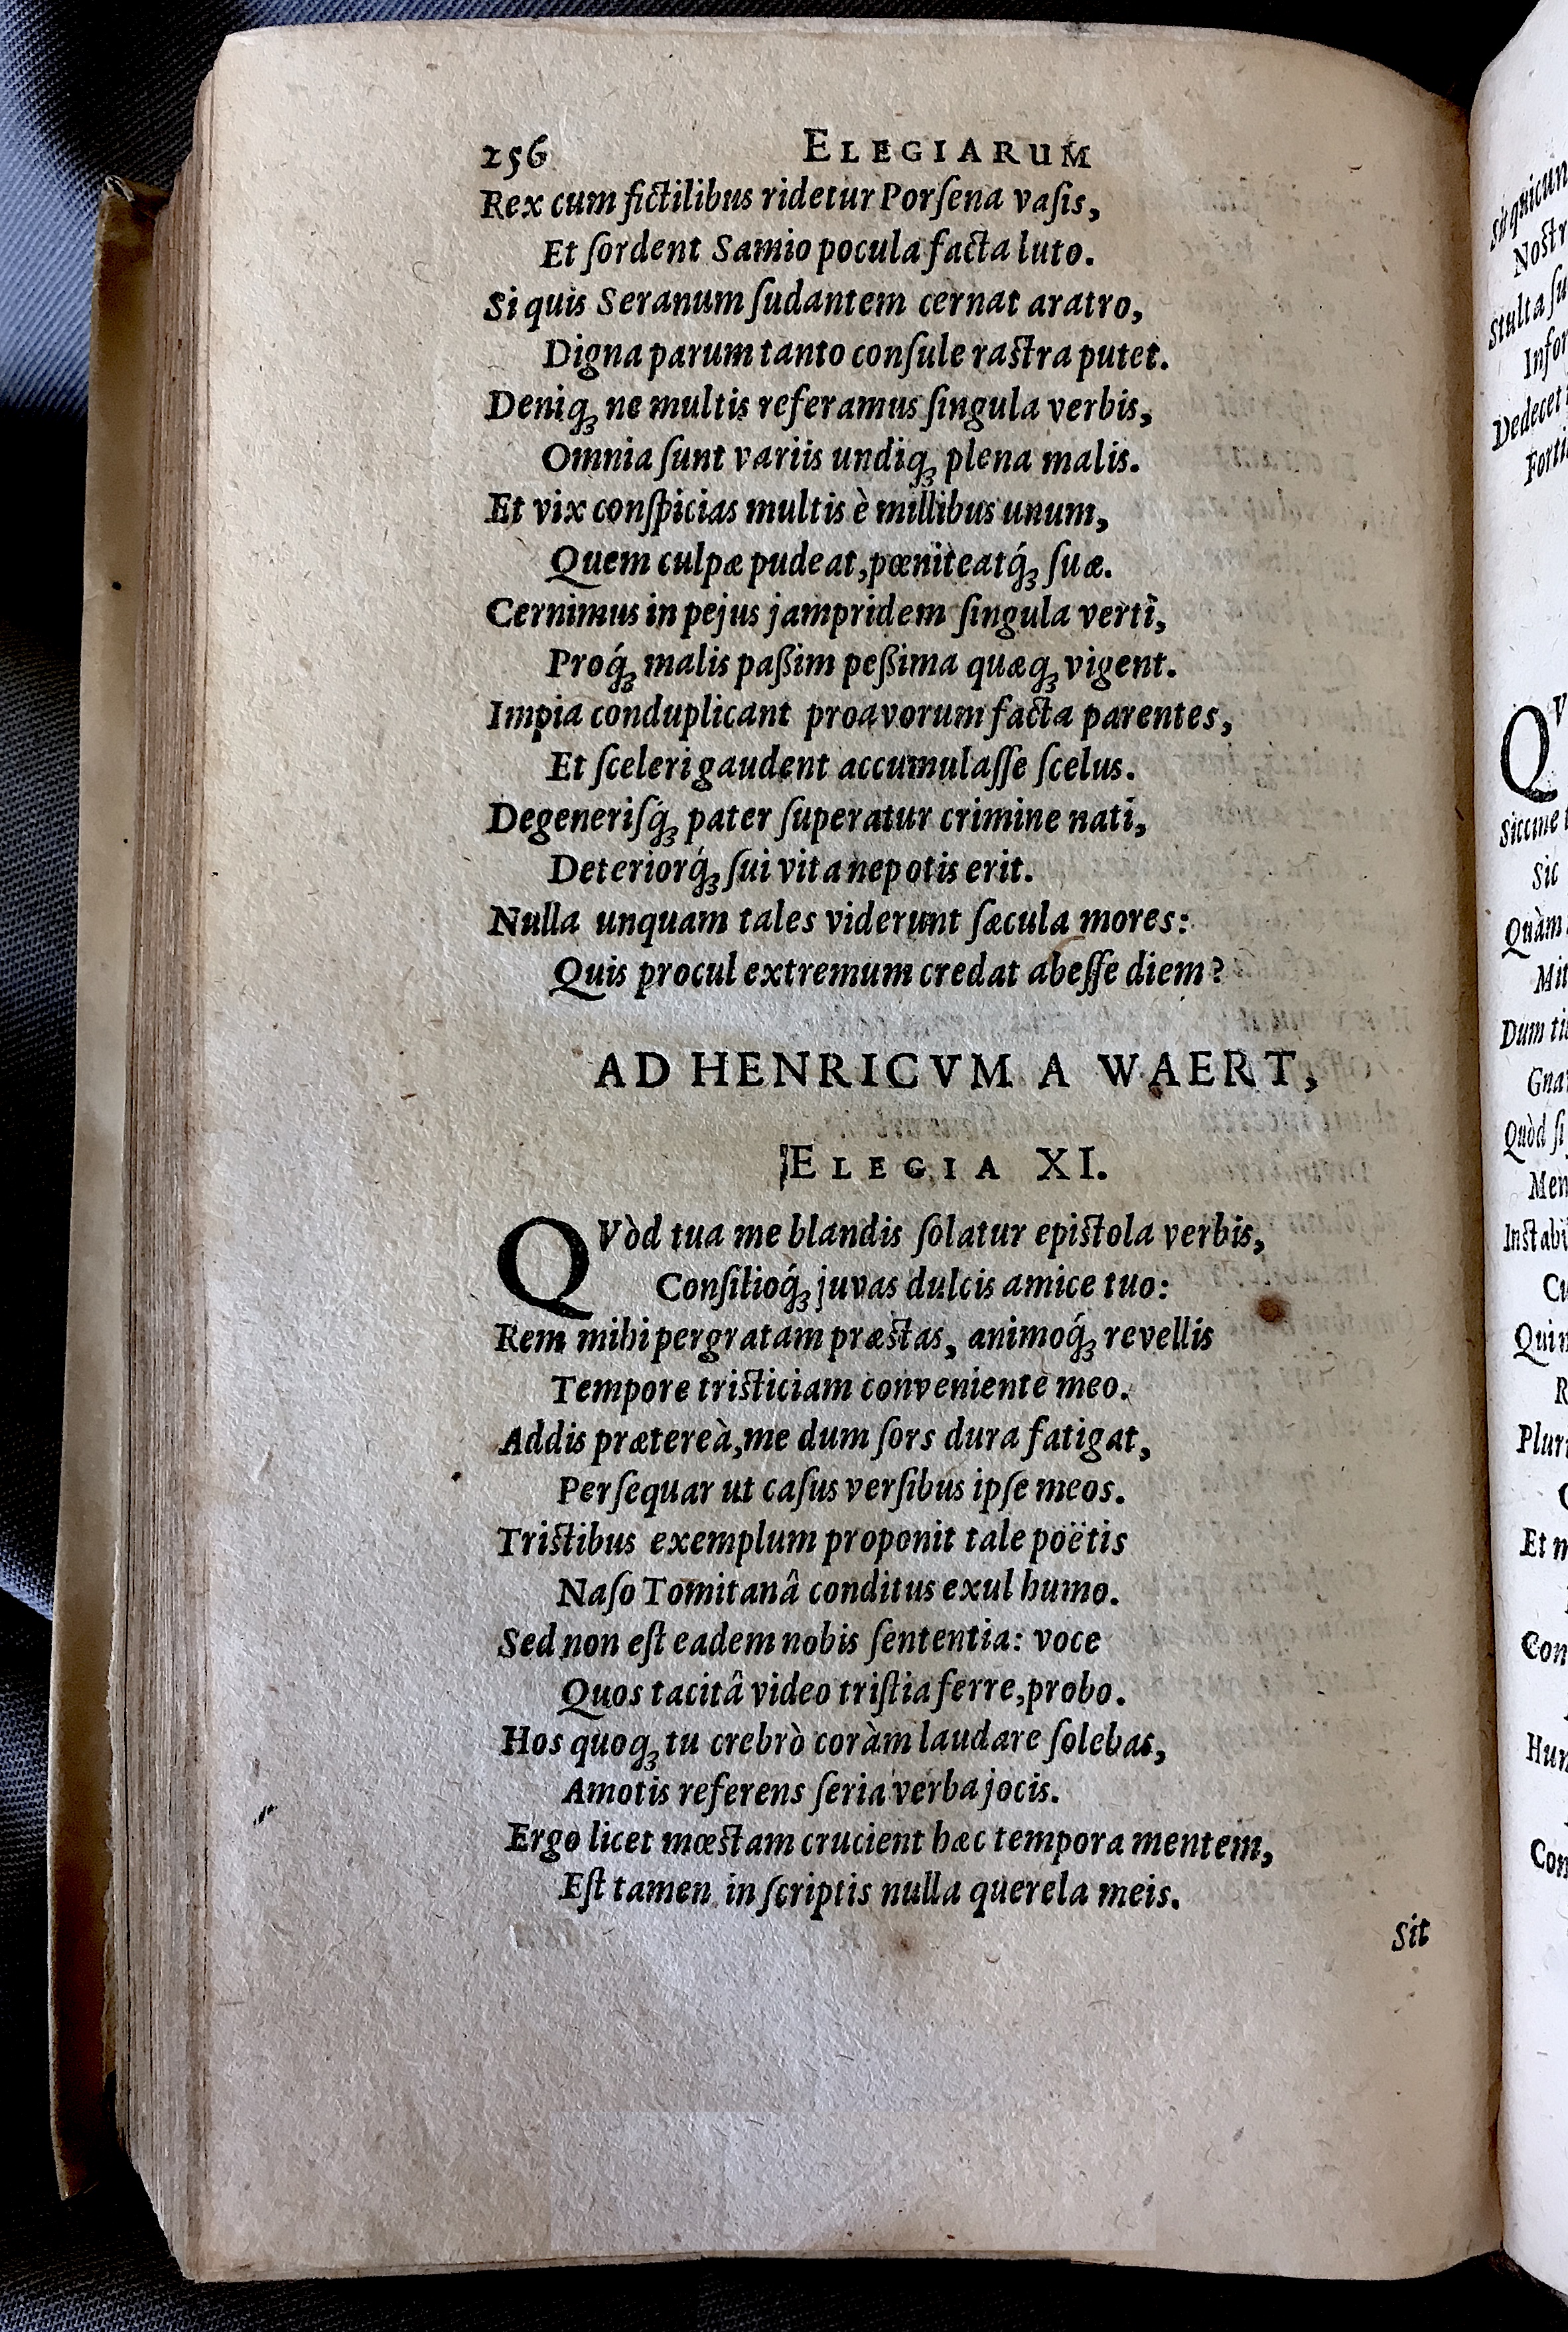 256 ELEGIARUM
Rex cum fictilibus ridetur Porſena vaſis,
Et ſordent Samio pocula facta luto.
Si quis Seranum ſudantem cernat aratro,
Digna parum tanto conſule raſtra putet.
Deniqꝫ ne multis referamus ſingula verbis,
Omnia ſunt variis undiqꝫ plena malis.
Et vix conſpicias multis è millibus unum,
Quem culpæ pudeat, pœniteatq́ꝫ ſuæ.
Cernimus in pejus jampridem ſingula verti,
Proq́ꝫ malis paßim peßima quæqꝫ vigent.
Impia conduplicant proavorum facta parentes,
Et ſceleri gaudent accumulaſſe ſcelus.
Degeneriſq́ꝫ pater ſuperatur crimine nati,
Deteriorq́ꝫ ſui vita nepotis erit.
Nulla unquam tales viderunt ſæcula mores:
Quis procul extremum credat abeſſe diem?
AD HENRICVM A WAERT,
ELEGIA XI.
QVòd tua me blandis ſolatur epiſtola verbis,
Conſilioq́ꝫ juvas dulcis amice tuo:
Rem mihi pergratam præſtas, animoq́ꝫ revellis
Tempore triſticiam conveniente meo.
Addis prætereà, me dum ſors dura fatigat,
Perſequar ut caſus verſibus ipſe meos.
Triſtibus exemplum proponit tale poëtis
Naſo Tomitanâ conditus exul humo.
Sed non eſt eadem nobis ſententia: voce
Quos tacitâ video triſtia ferre, probo.
Hos quoqꝫ tu crebrò coràm laudare ſolebas,
Amotis referens ſeria verba jocis.
Ergo licet mœſtam crucient hæc tempora mentem,
Eſt tamen in ſcriptis nulla querela meis.
Sit
Nostr
Stulta ſu
Infor
Dedecet
Forti
QV
Siccine
Sic
Quàm
Mit
Dum ti
Gna
Quòd ſi
Men
Inſtabi
Cu
Quin
R
Plur
C
Et m
Con
Hun
Con